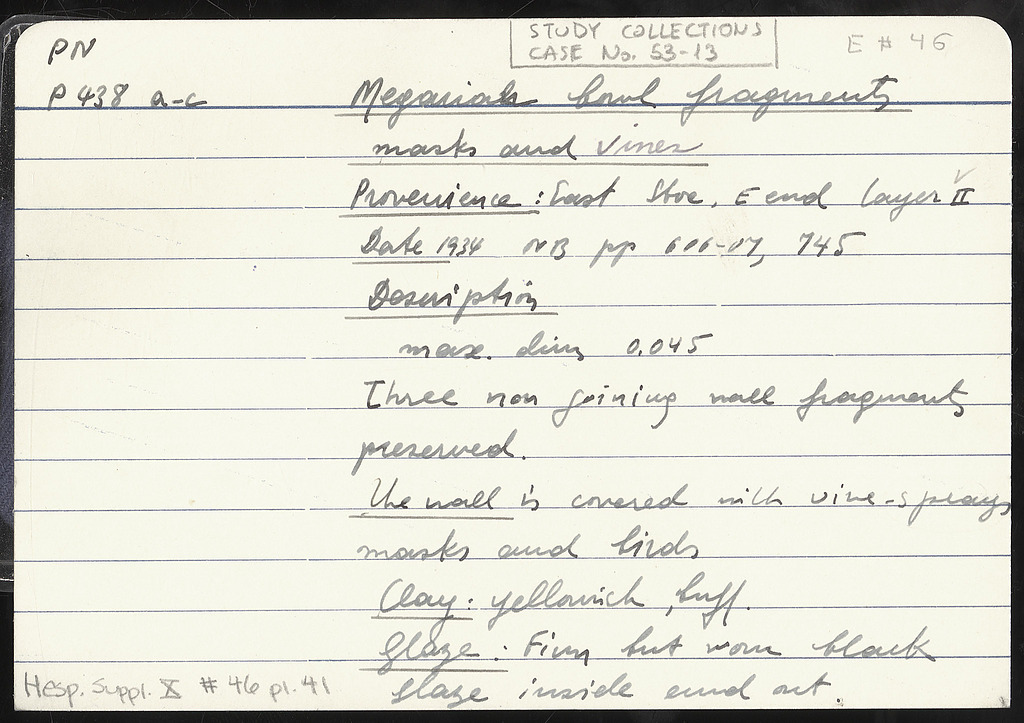 PN
STUDY COLLECTIONS
CASE No. 53-13
E # 46
P 438 a-c
Megarian bowl fragments
masks and vines
Provenience : East Stoa, E end layer II
Date 1934 NB pp 606-07, 745
Description
max. dim 0.045
Three non joining wall fragments
preserved.
The wall is covered with vine-sprays
masks and birds
Clay: yellowish buff.
Glaze : Firm but worn black
glaze inside and out.
Hesp. Suppl. X # 46 pl. 41